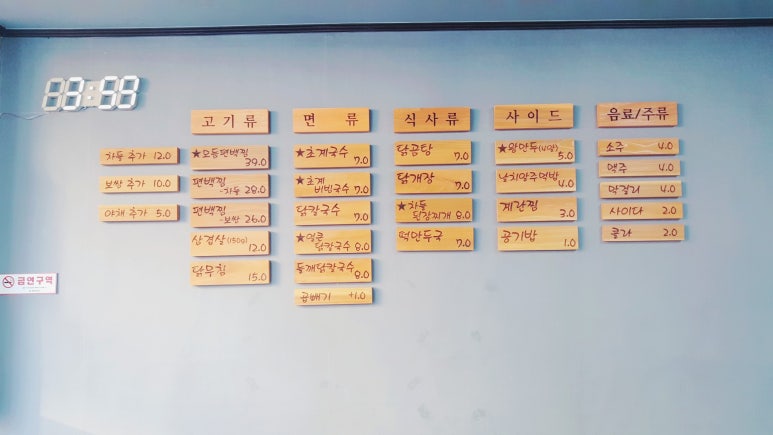 88:88
고기류
★모듬편백찜 39.0
편백찜
-차돌 28.0
편백찜
-보쌈 26.0
삼겹살(150g) 12.0
닭무침 15.0
차돌 추가 12.0
보쌈 추가 10.0
야채 추가 5.0
면 류
★초계국수 7.0
★초계
비빔국수 7.0
닭칼국수 7.0
★얼큰
닭칼국수 8.0
들깨닭칼국수 8.0
곱빼기 +1.0
식사류
닭곰탕 7.0
닭개장 7.0
★차돌
된장찌개 8.0
떡만두국 7.0
사이드
★왕만두(4알) 5.0
날치알주먹밥 4.0
계란찜 3.0
공기밥 1.0
음료/주류
소주 4.0
맥주 4.0
막걸리 4.0
사이다 2.0
콜라 2.0
금연구역